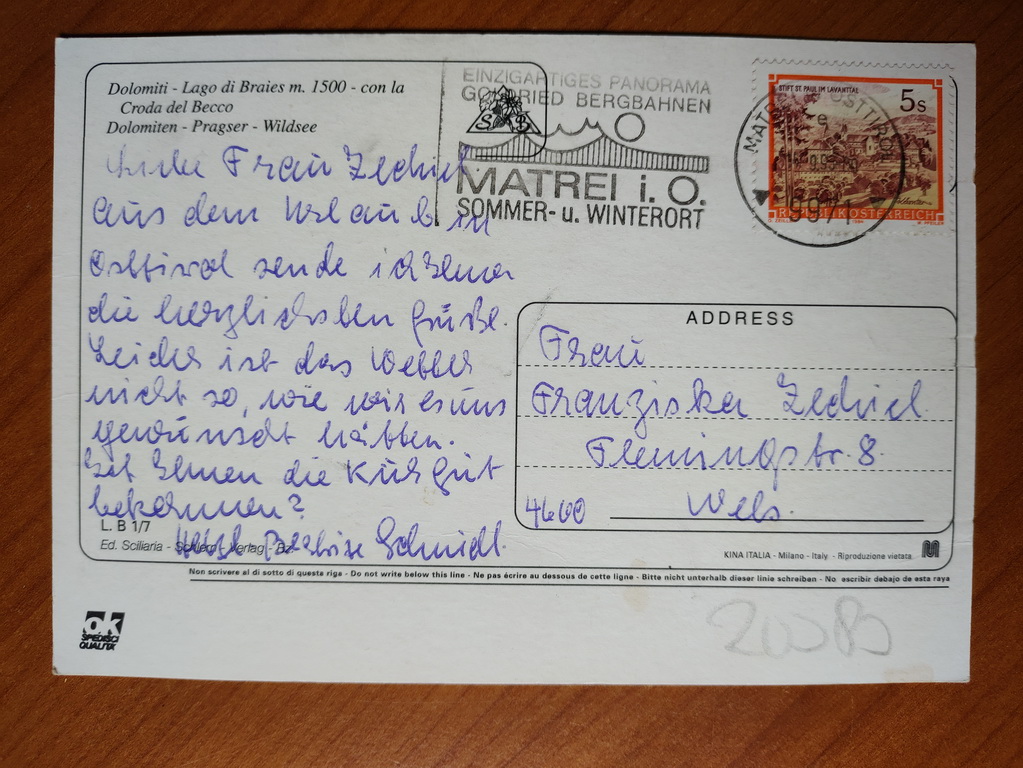 Dolomiti - Lago di Braies m. 1500 - con la
Croda del Becco
Dolomiten - Pragser - Wildsee
EINZIGARTIGES PANORAMA
GOLDRIED BERGBAHNEN
MATREI i. O.
SOMMER- u. WINTERORT
STIFT ST. PAUL IM LAVANTTAL
5s
REPUBLIK ÖSTERREICH
MATREI OSTTIROL
9971
Liebe Frau Zechiel
Aus dem Urlaub in
Osttirol sende ich Ihnen
die herzlichsten Grüße.
Leider ist das Wetter
nicht so, wie wir es uns
gewünscht hätten.
Hat Ihnen die Kur gut
bekommen?
Schmidt
L. B 1/7
Ed. Sciliaria - Schlern - Verlag - Bz
ADDRESS
Frau
Franziska Zechiel
Flemingstr. 8
4600 Wels
KINA ITALIA - Milano - Italy - Riproduzione vietata
Non scrivere al di sotto di questa riga - Do not write below this line - Ne pas écrire au dessous de cette ligne - Bitte nicht unterhalb dieser linie schreiben - No escribir debajo de esta raya
ok
SPEDISCI
QUALITA'